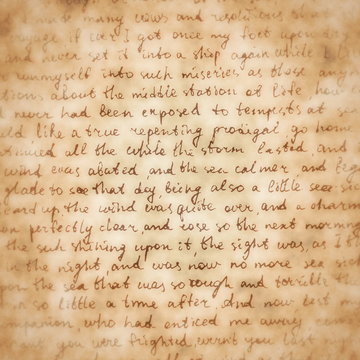 made many vows and resolutions
voyage if ever I got once my foot upon dry
and never set it into a ship again while I
runmyself into such miseries as those any
tions about the middle station of life, how
never had been exposed to tempests at
uld like a true repenting prodigal go home
tinued all the while the storm lasted, and
wind was abated, and the sea calmer, and
glade to see that day, being also a little sea
eard up, the wind was quite over, and a charm
on perfectly clear, and rose so the next morning
the sun shining upon it, the sight was, as I t
in the night, and was now no more sea
pon the sea that was so rough and terrible th
in so little a time after. And now last my
ompanion, who had enticed me away,
nt you were frighted, wern't you last nig